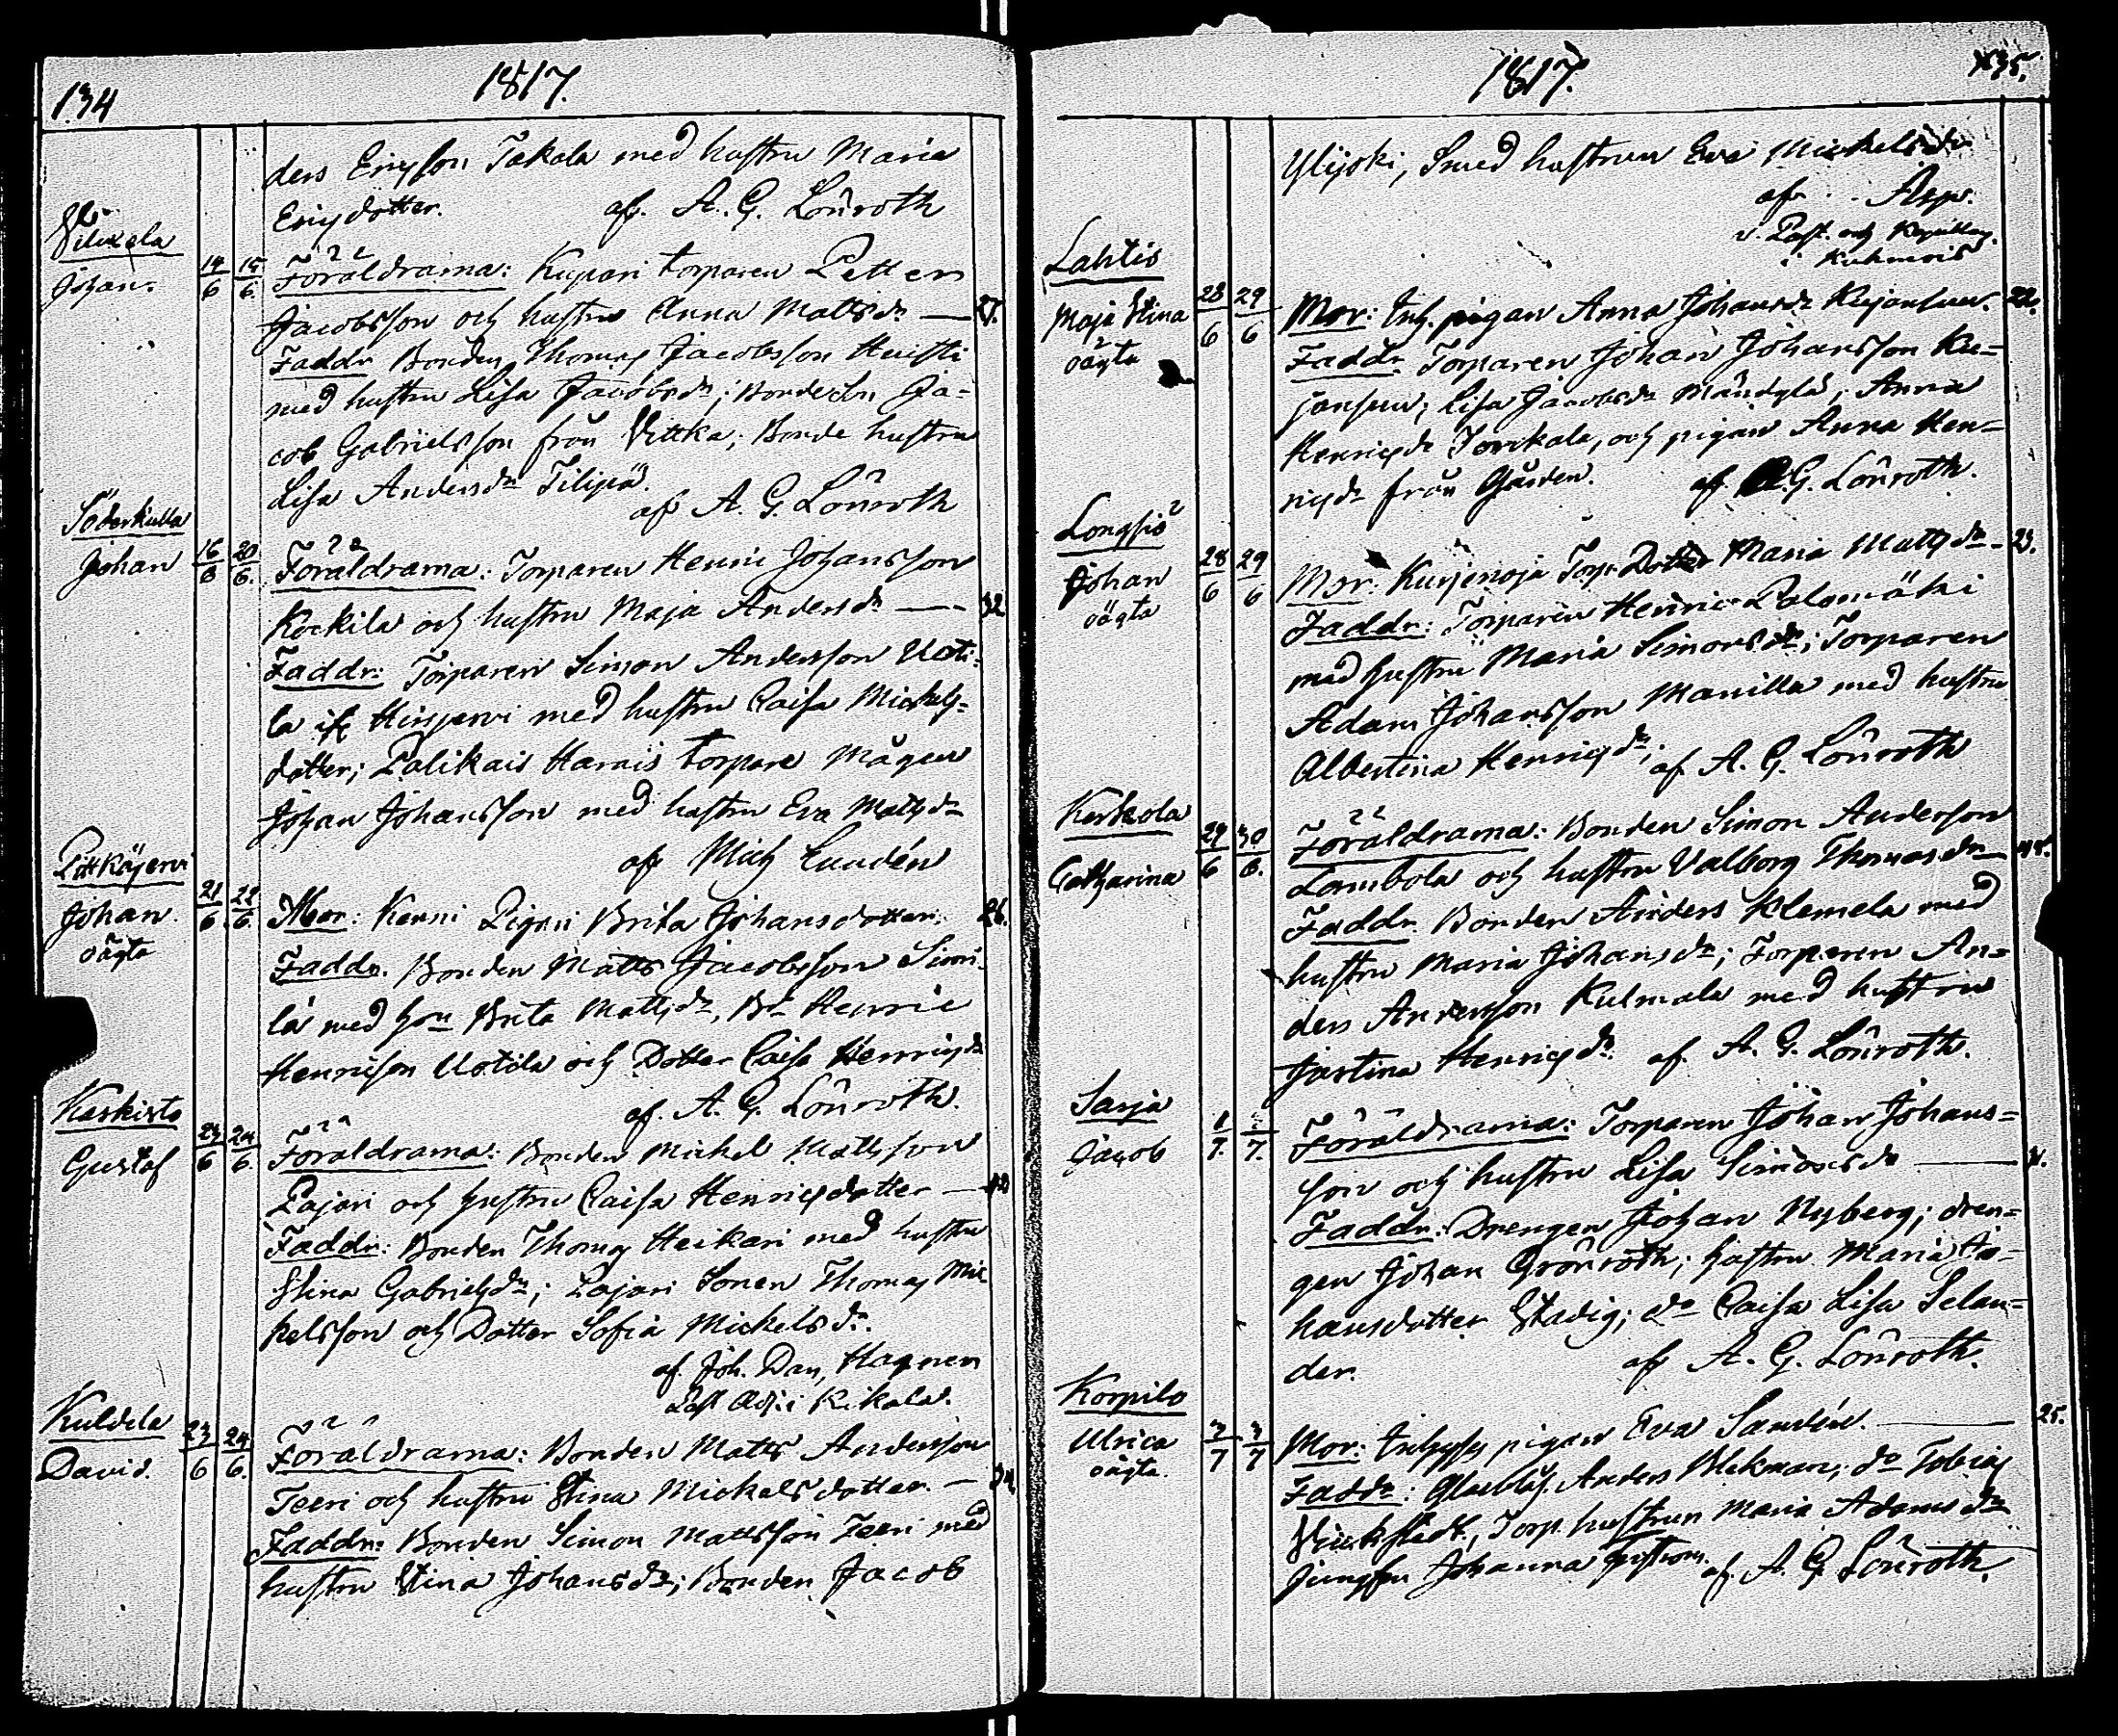 134
1817.
ders Ericsson Takala med hustru Maria
Ericsdotter. af. A. G. Lönroth
Johan. 14/6 15/6
Föräldrarna: Kupari torparen Petter
Jacobsson och hustru Anna Mattsdr — 27.
Faddr Bonden Thomas Jacobsson Heusti
med hustru Lisa Jacobsdr; Bonde Son Ja-
cob Gabrielsson från Vittka; Bonde hustru
Lisa Andersdr Tilipä.
af A. G. Lönroth
Söderkulla
Johan 16/6 20/6.
Föräldrarna: Torparen Henric Johansson
Kockila och hustru Maja Andersdr — 32
Faddr: Torparen Simon Andersson Uoti-
la ifr Hirsjervi med hustru Caisa Michels-
dotter; Palikais Harnis torpare Mågen
Johan Johansson med hustru Eva Mattsdr
af Mich Lundén
Pitkäjervi
Johan. 21/6 22/6.
oägta
Mor: Kenni Pigan Brita Johansdotter. 26.
Faddr. Bonden Matts Jacobsson Simi-
lä med hru Brita Mattsdr, Bn Henric
Henricson Uotila och Dotter Caisa Henricsdr
af. A. G. Lönroth.
Kerkisto
Gustaf 23/6 24/6.
Föräldrarna: Bonden Michel Mattsson
Pajari och hustru Caisa Henricsdotter — 42
Faddr: Bonden Thomas Heikari med hustru
Stina Gabrielsdr; Pajari Sonen Thomas Mic
kelsson och Dotter Sofia Michelsdr.
af. Joh. Dan. Hagnen
Past. Adj: i Kikala.
Kuldela
David. 23/6 24/6.
Föräldrarna: Bonden Matts Andersson
Teeri och hustru Stina Mickelsdotter. — 34
Faddr: Bonden Simon Mattsson Teeri med
hustru Stina Johansdr; Bonden Jacob
1817.
135.
Ylijoki, Smed hustrun Eva Mickelsdr
af Asp.
v. Past. och Kapellan
i Kuhmois
Lahtis
Maja Stina 28/6 29/6
oägta
Mor: Inh. pigan Anna Johansdr Kujansuu. 22.
Faddr. Torparen Johan Johansson Ku-
jansuu; Lisa Jacobsdr Mändylä; Anna
Henricsdr Torckala, och pigan Anna Hen-
ricsdr från Gården. af A. G. Lönroth.
Longsjö
Johan 28/6 29/6
oägta
Mor: Kurjenoja Torp. Dotter Maria Mattsdr — 23.
Faddr: Torparen Henric Palomäki
med hustru Maria Simonsdr; Torparen
Adam Johansson Manilla med hustru
Albertina Henricsdr; af A. G. Lönroth
Kerkola
Catharina 29/6 30/6.
Föräldrarna: Bonden Simon Anderson
Lambola och hustru Valborg Thomasdr — 44.
Faddr. Bonden Anders Klemela med
hustru Maria Johansdr; Torparen An-
ders Andersson Kulmala med hustru
Justina Henricsdr. af. A. G. Lönroth.
Sarja
Jacob 1/7. /7.
Föräldrarna: Torparen Johan Johans-
son och hustru Lisa Simonsdr —
Faddr: Drengen Johan Nyberg; dren-
gen Johan Grönroth; hustru Maria Jo-
hansdotter Stadig; do Caisa Lisa Selan-
der. af A. G. Lönroth.
Korpilo
Ulrica 2/7 3/7
oägta.
Mor: Inhyses pigan Eva Sandén. — 25.
Faddr: Anders Blekman; do Tobias
Torp. hustrun Maria Adamsdr
Jungfru Johanna af. A. G. Lönroth.